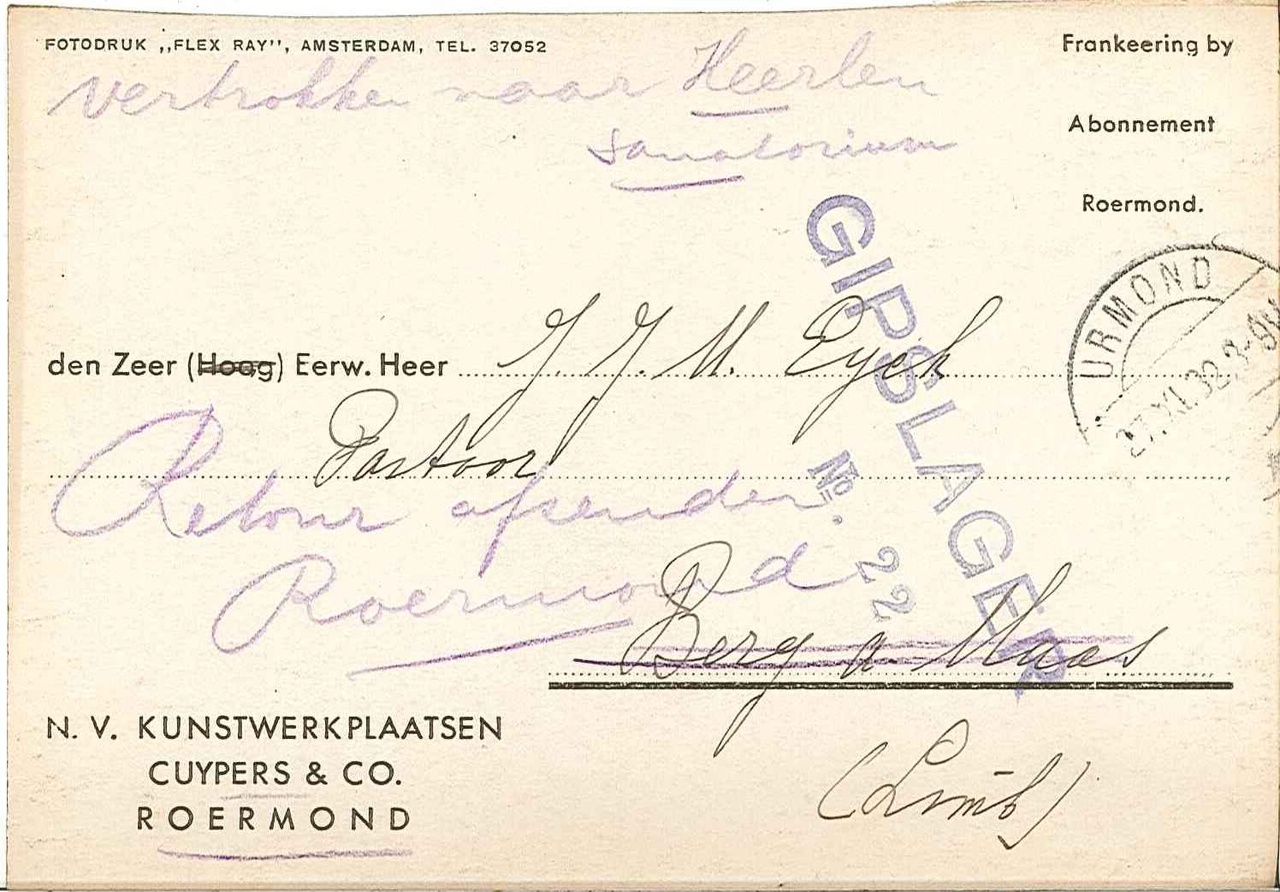 FOTODRUK „FLEX RAY”, AMSTERDAM, TEL. 37052
Frankeering by
Abonnement
Roermond.
vertrokken naar Heerlen
sanatorium
GIPSLAGER
No. 22
URMOND
27.XI.32.3-9N
den Zeer (Hoog) Eerw. Heer J. J. M. Eyck
Pastoor
Retour afsender.
Roermond
Berg a Maas
(Limb)
N. V. KUNSTWERKPLAATSEN
CUYPERS & CO.
ROERMOND